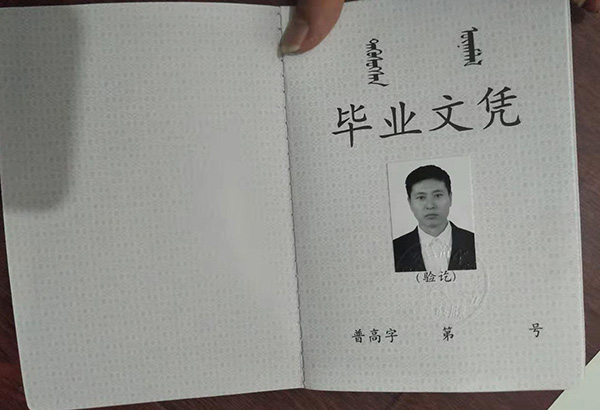 毕业文凭
(验讫)
普高字 第 号